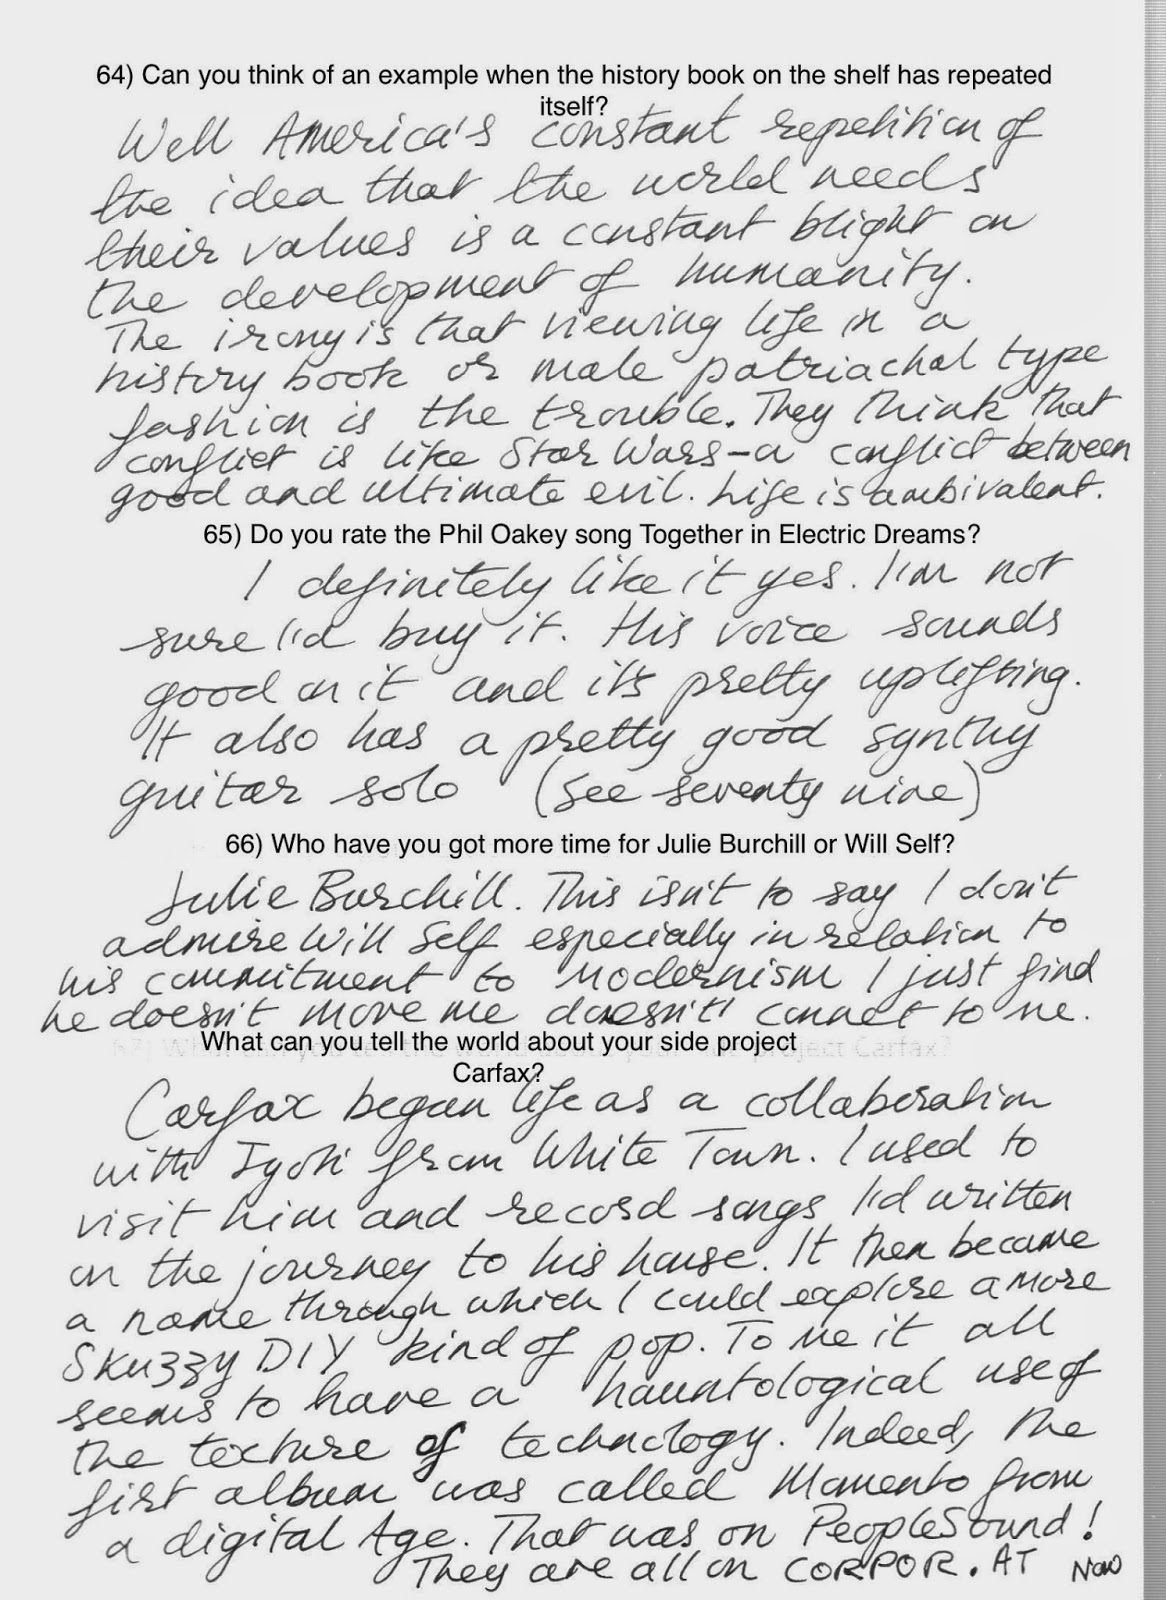 64) Can you think of an example when the history book on the shelf has repeated
itself?
Well America's constant repetition of
the idea that the world needs
their values is a constant blight on
the development of humanity.
The irony is that viewing life in a
history book or male patriachal type
fashion is the trouble. They think that
conflict is like Star Wars - a conflict between
good and ultimate evil. Life is ambivalent.
65) Do you rate the Phil Oakey song Together in Electric Dreams?
I definitely like it yes. I'm not
sure I'd buy it. His voice sounds
good on it and it's pretty uplifting.
It also has a pretty good synthy
guitar solo (see seventy nine)
66) Who have you got more time for Julie Burchill or Will Self?
Julie Burchill. This isn't to say I don't
admire Will Self especially in relation to
his commitment to Modernism I just find
he doesn't move me doesn't connect to me.
What can you tell the world about your side project
Carfax?
Carfax began life as a collaboration
with Jyoti from White Town. I used to
visit him and record songs I'd written
on the journey to his house. It then became
a name through which I could explore a more
Skuzzy DIY kind of pop. To me it all
seems to have a hauntological use of
the texture of technology. Indeed, the
first album was called Momento from
a digital Age. That was on PeopleSound!
They are all on CORPOR.AT Now